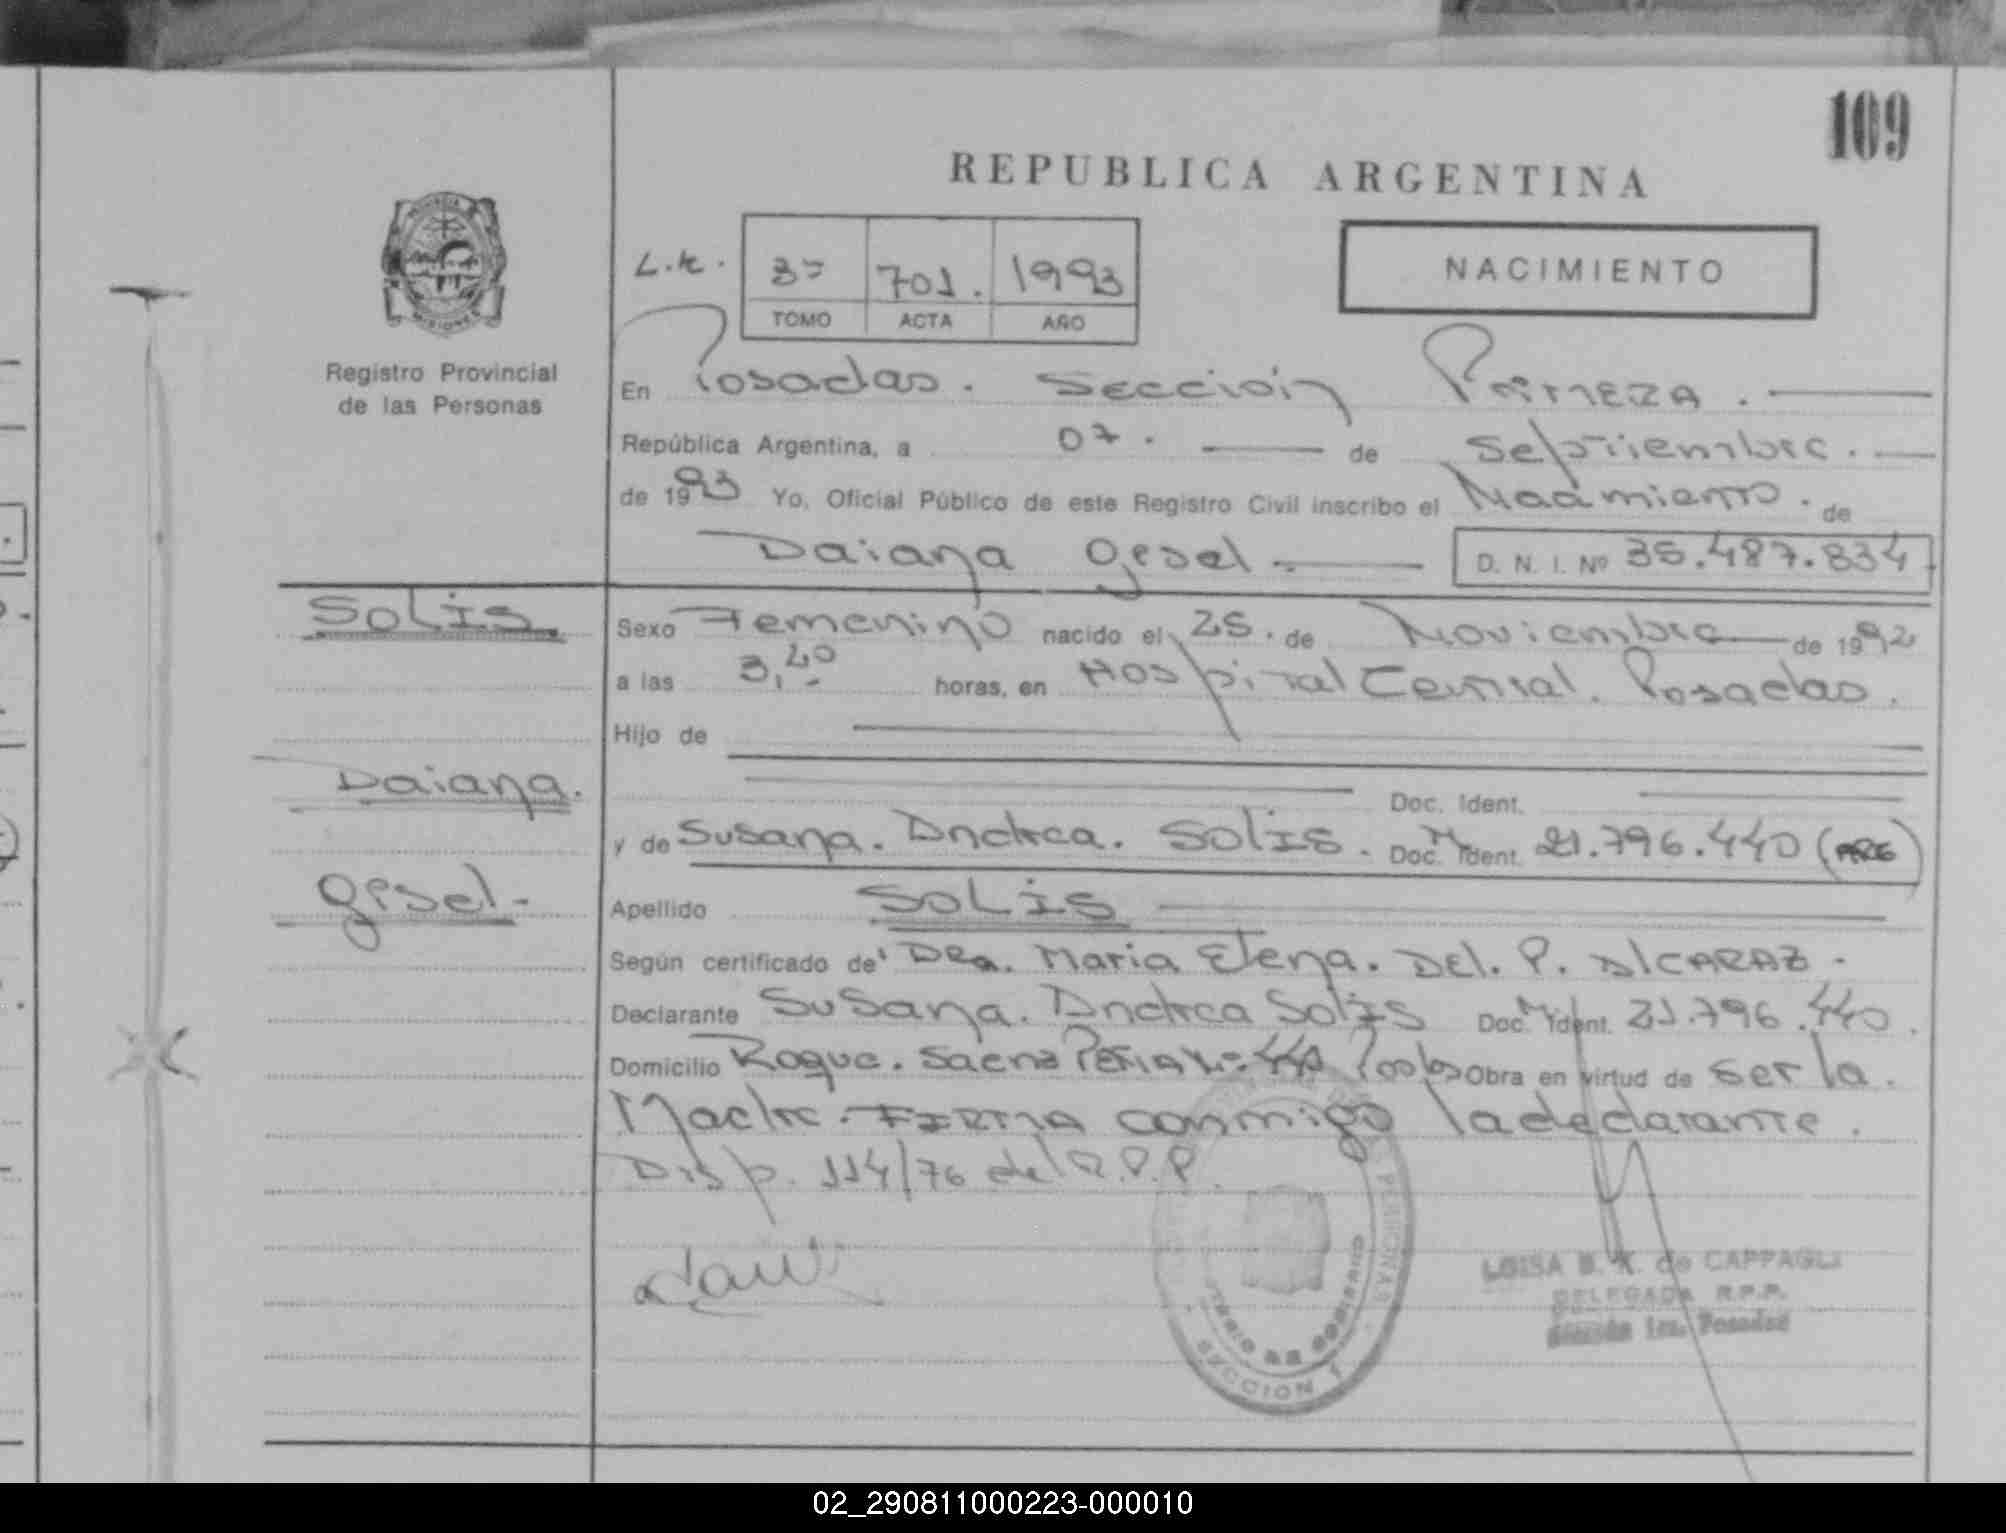 109
REPUBLICA ARGENTINA
L.R. 3º 701. 1993
TOMO ACTA AÑO
NACIMIENTO
PROVINCIA
MISIONES
Registro Provincial
de las Personas
En Posadas. Sección Primera.
República Argentina, a 07. de Septiembre.
de 1993 Yo, Oficial Público de este Registro Civil inscribo el Nacimiento. de
Daiana Gesel D. N. I. Nº 36.487.834
SOLIS
Sexo Femenino nacido el 25. de Noviembre de 1992
a las 3,40 horas, en Hospital Central. Posadas.
Hijo de
Daiana.
Doc. Ident.
y de Susana. Andrea. SOLIS. Doc. Ident. 21.796.440 (ARG)
Gesel-
Apellido SOLIS
Según certificado de Dra. Maria Elena. Del. P. Alcaraz.
Declarante Susana. Andrea Solis Doc. Ident. 21.796.440.
Domicilio Roque. Saenz Peña Nº 440 Posadas Obra en virtud de ser la.
Madre. FIRMA conmigo la declarante.
Disp. 114/76 del R.P.P.
LUISA B. K. de CAPPAGLI
DELEGADA R.P.P.
Sección 1ra. Posadas
SECCION 1
02_290811000223-000010